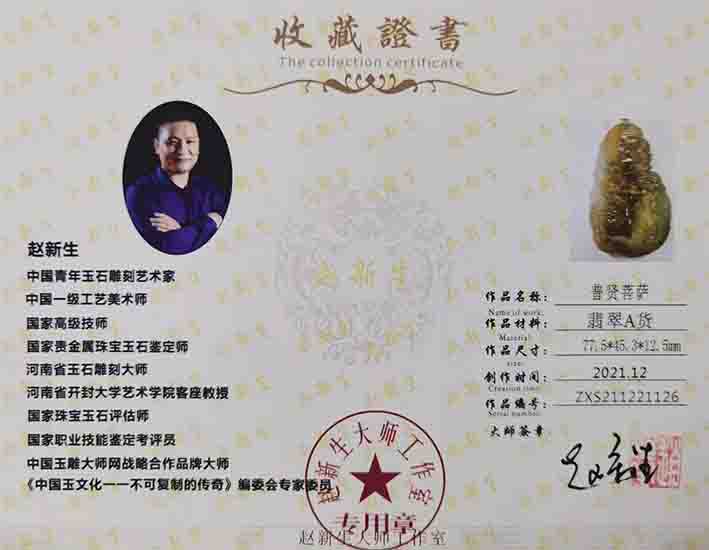 收藏證書
The collection certificate
赵新生
中国青年玉石雕刻艺术家
中国一级工艺美术师
国家高级技师
国家贵金属珠宝玉石鉴定师
河南省玉石雕刻大师
河南省开封大学艺术学院客座教授
国家珠宝玉石评估师
国家职业技能鉴定考评员
中国玉雕大师网战略合作品牌大师
《中国玉文化一一不可复制的传奇》编委会专家委员
赵新生
作品名称: 普贤菩萨
Name of work:
作品材料: 翡翠A货
Material:
作品尺寸: 77.5*45.3*12.5mm
size:
创作时间: 2021.12
Creation time:
作品编号: ZXS211221126
Serial number:
大师签章:
赵新生
赵新生大师工作室
专用章
赵新生大师工作室